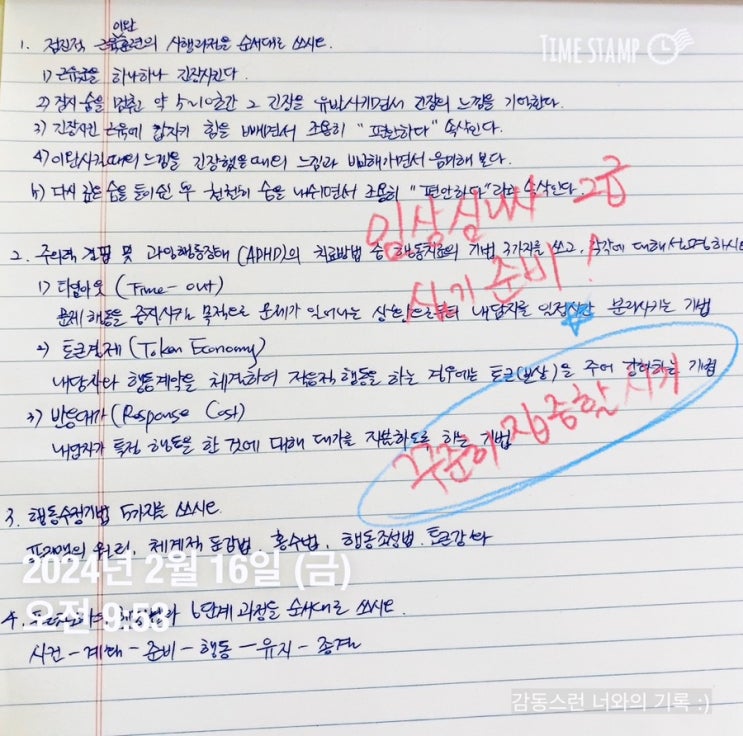 TIME STAMP
이완
1. 점진적 근육훈련의 시행과정을 순서대로 쓰시오.
1) 근육군을 하나하나 긴장시킨다.
2) 잠시 숨을 멈추고 약 5~10초간 그 긴장을 유발시키면서 긴장의 느낌을 기억한다.
3) 긴장시킨 근육에 갑자기 힘을 빼면서 조용히 "편안하다" 속삭인다.
4) 이완시킬때의 느낌을 긴장했을때의 느낌과 비교해가면서 음미해 본다.
5) 다시 깊은 숨을 들이쉰 후 천천히 숨을 내쉬면서 조용히 "편안하다"라고 속삭인다.
임상심리사 2급
2. 주의력 결핍 및 과잉행동장애(ADHD)의 치료방법 중 행동치료의 기법 3가지를 쓰고, 각각에 대해 설명하시오
실기 준비!
1) 타임아웃 (Time-out)
문제 행동을 중지시키는 목적으로 문제가 일어나는 상황으로부터 내담자를 일정시간 분리시키는 기법
2) 토큰경제 (Token Economy)
내담자와 행동계약을 체결하여 적응적 행동을 하는 경우에는 토큰(보상)을 주어 강화하는 기법
3) 반응대가 (Response Cost)
내담자가 특정 행동을 한 것에 대해 대가를 지불하도록 하는 기법
꾸준히 집중할 시기
3. 행동수정기법 5가지를 쓰시오.
원리, 체계적 둔감법, 홍수법, 행동조성법, 토큰강화
2024년 2월 16일 (금)
오전 9:53
4. 6단계 과정을 순서대로 쓰시오.
계획 - 준비 - 행동 - 유지 - 종결
감동스런 너와의 기록 :)